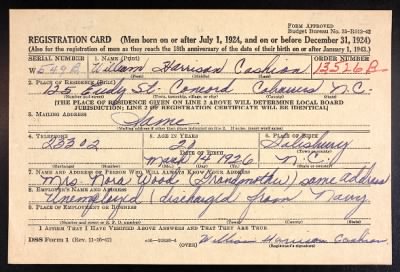 FORM APPROVED
Budget Bureau No. 33-R012-42
REGISTRATION CARD (Men born on or after July 1, 1924, and on or before December 31, 1924)
(Also for the registration of men as they reach the 18th anniversary of the date of their birth on or after January 1, 1943.)
SERIAL NUMBER 1. NAME (Print) ORDER NUMBER
W 549 B William Harrison Cashion 13526 B
(First) (Middle) (Last)
2. PLACE OF RESIDENCE (Print)
125 Eudy St. Concord Cabarrus N.C.
(Number and street) (Town, township, village, or city) (County) (State)
[THE PLACE OF RESIDENCE GIVEN ON LINE 2 ABOVE WILL DETERMINE LOCAL BOARD
JURISDICTION; LINE 2 OF REGISTRATION CERTIFICATE WILL BE IDENTICAL]
3. MAILING ADDRESS
Same
[Mailing address if other than place indicated on line 2. If same, insert word same]
4. TELEPHONE 5. AGE IN YEARS 6. PLACE OF BIRTH
23302 Salisbury
DATE OF BIRTH
March 14 1926 N.C.
(Exchange) (Number) (Mo.) (Day) (Yr.) (State or country)
7. NAME AND ADDRESS OF PERSON WHO WILL ALWAYS KNOW YOUR ADDRESS
Mrs. Nora Wood (Grandmother) same address
8. EMPLOYER'S NAME AND ADDRESS
Unemployed (discharged from Navy.
9. PLACE OF EMPLOYMENT OR BUSINESS
(Number and street or R. F. D. number) (Town) (County) (State)
I AFFIRM THAT I HAVE VERIFIED ABOVE ANSWERS AND THAT THEY ARE TRUE.
DSS Form 1 (Rev. 11-16-42) (OVER) William Harrison Cashion
(Registrant's signature)